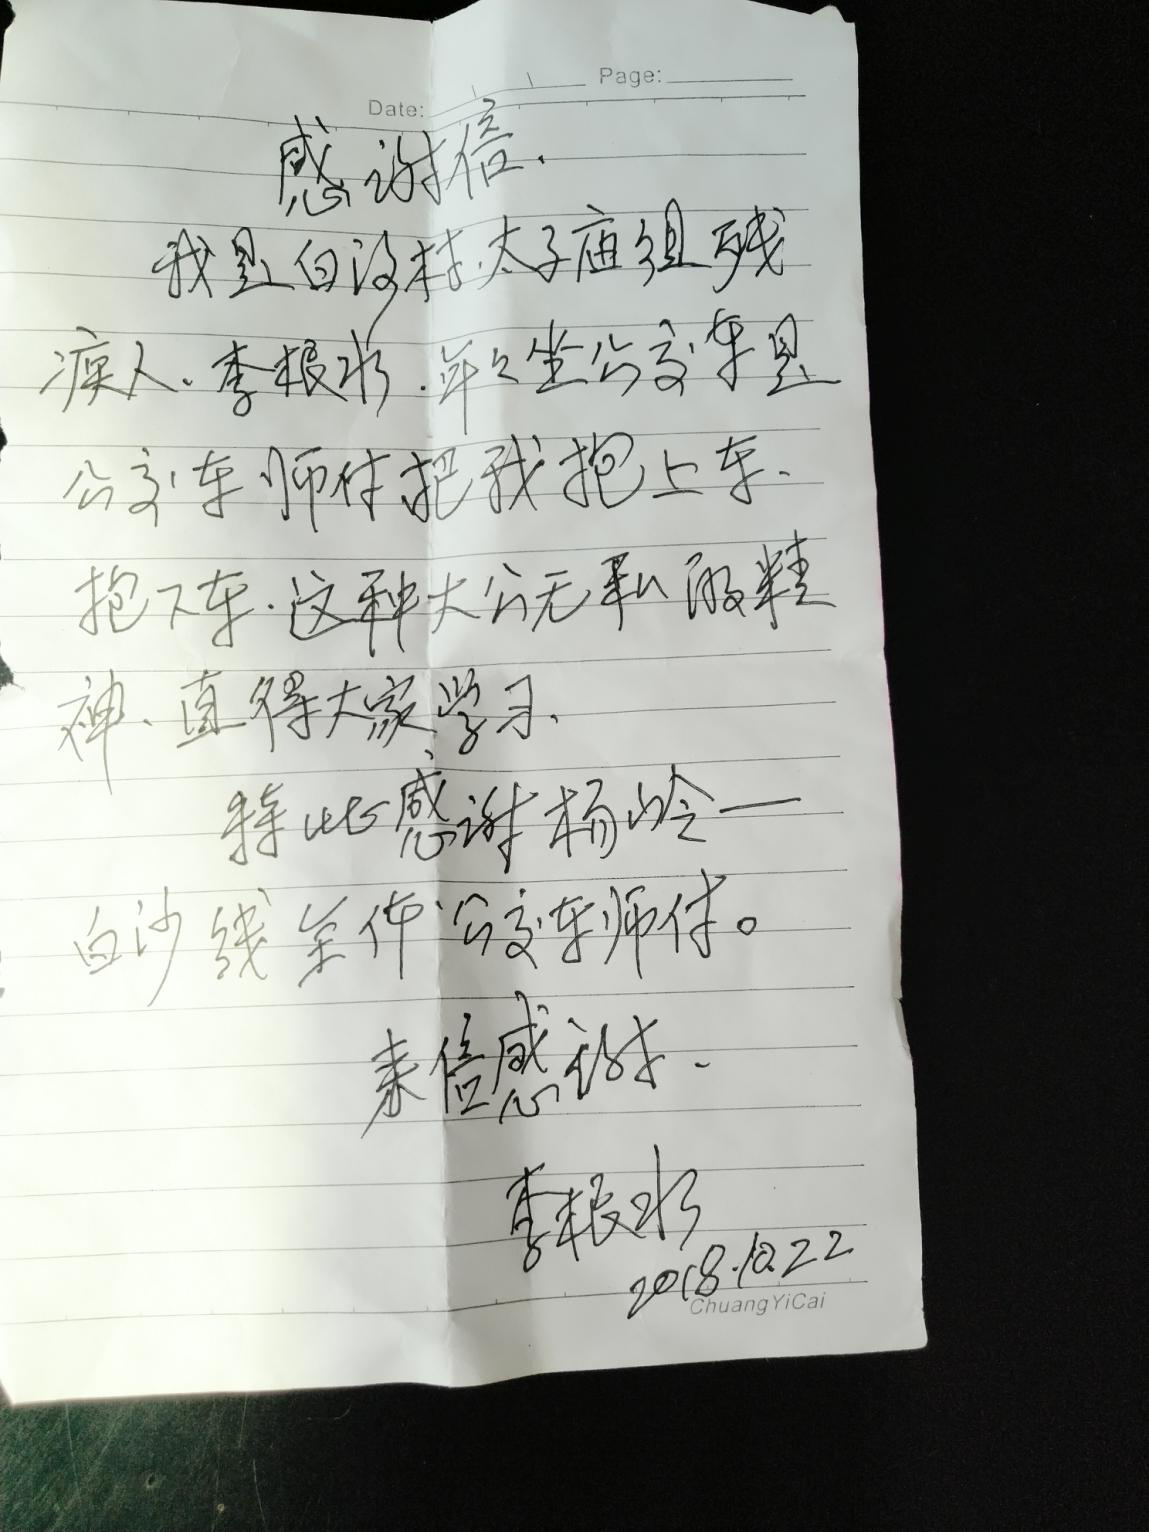 Date: Page:
感谢信.
我是白沙村.太子庙组残
疾人、李根水.年年坐公交车是
公交车师付把我抱上车、
抱下车.这种大公无私的精
神、直得大家学习、
特此感谢杨岭一
白沙线全体公交车师付。
来信感谢.
李根水
2018.10.22
ChuangYiCai